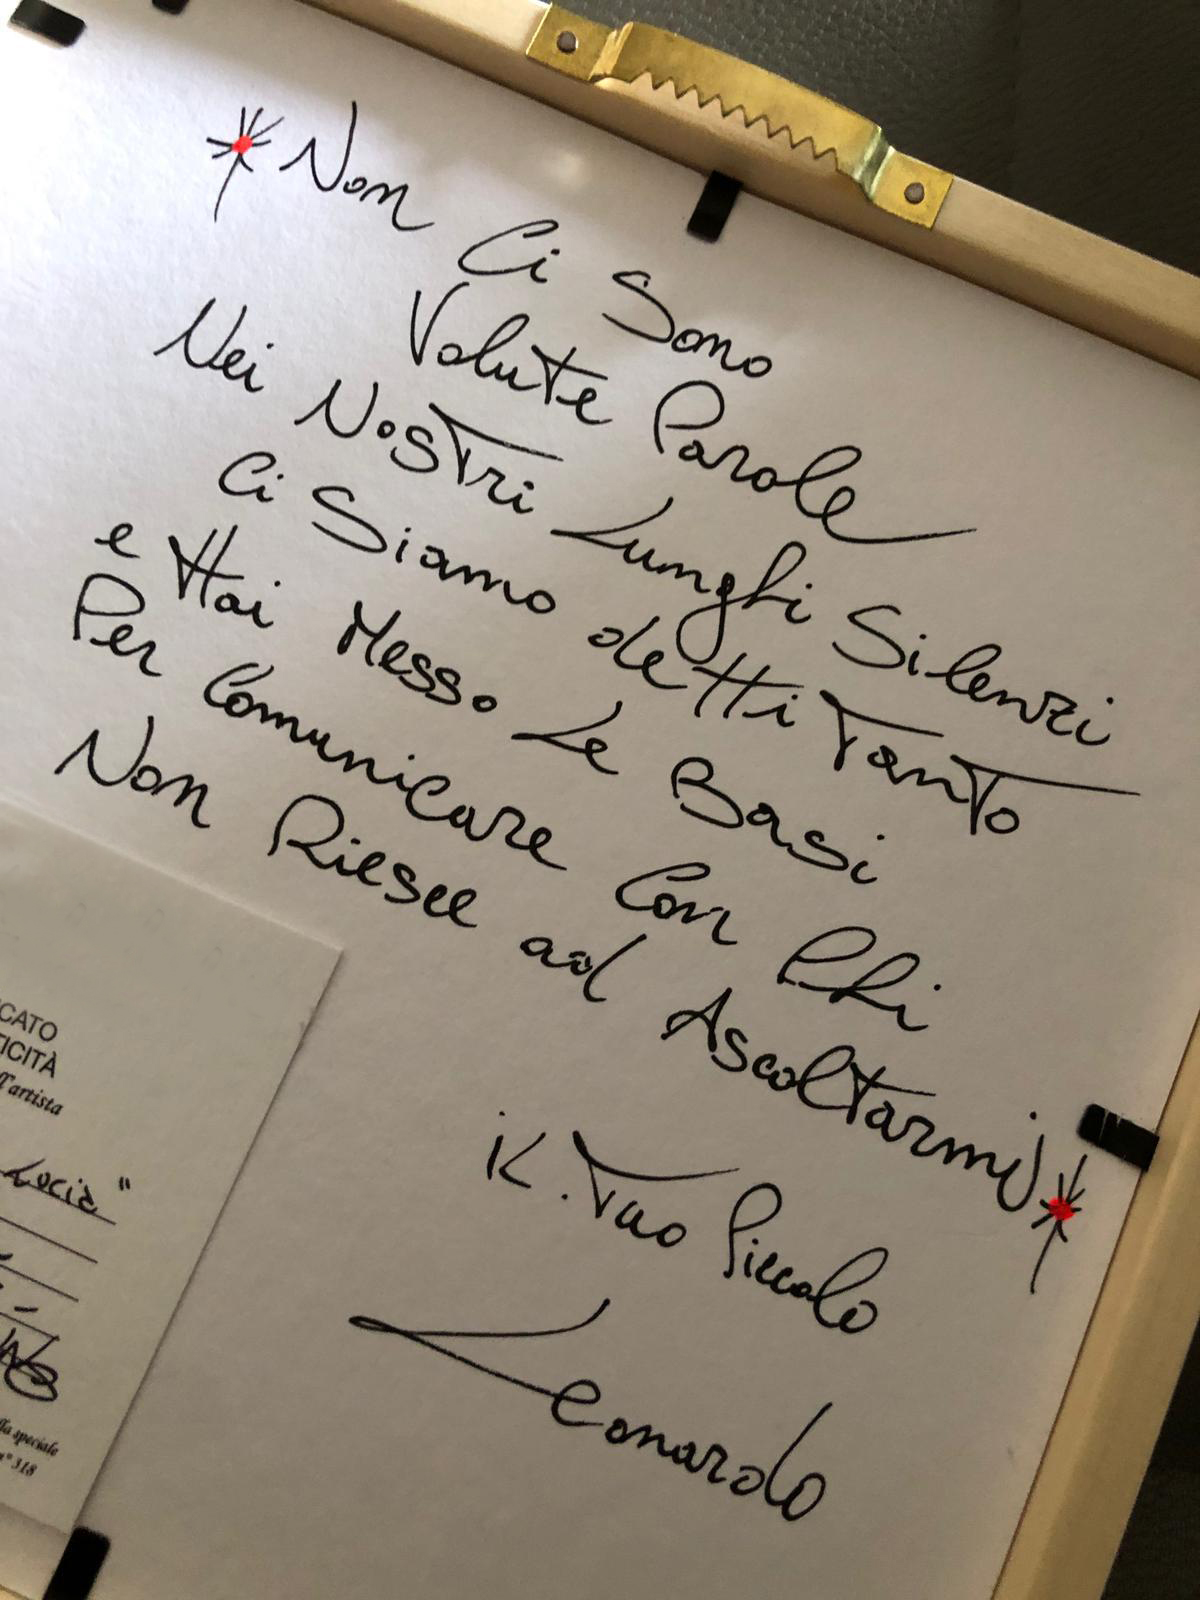 Non Ci Sono
Volute Parole
Nei Nostri Lunghi Silenzi
Ci Siamo detti Tanto
e Hai Messo Le Basi
Per Comunicare Con Chi
Non Riesce ad Ascoltarmi
il Tuo Piccolo
Leonardo
CATO
TICITÀ
l'artista
Lucia"
lla speciale
n° 318